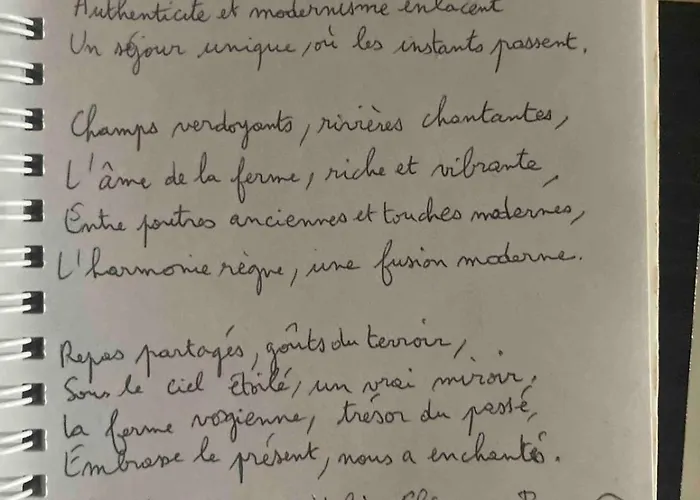 Authenticité et modernisme enlacent
Un séjour unique, où les instants passent.
Champs verdoyants, rivières chantantes,
L'âme de la ferme, riche et vibrante,
Entre poutres anciennes et touches modernes,
L'harmonie règne, une fusion moderne.
Repas partagés, goûts du terroir,
Sous le ciel étoilé, un vrai miroir,
La ferme vosgienne, trésor du passé,
Embrasse le présent, nous a enchantés.